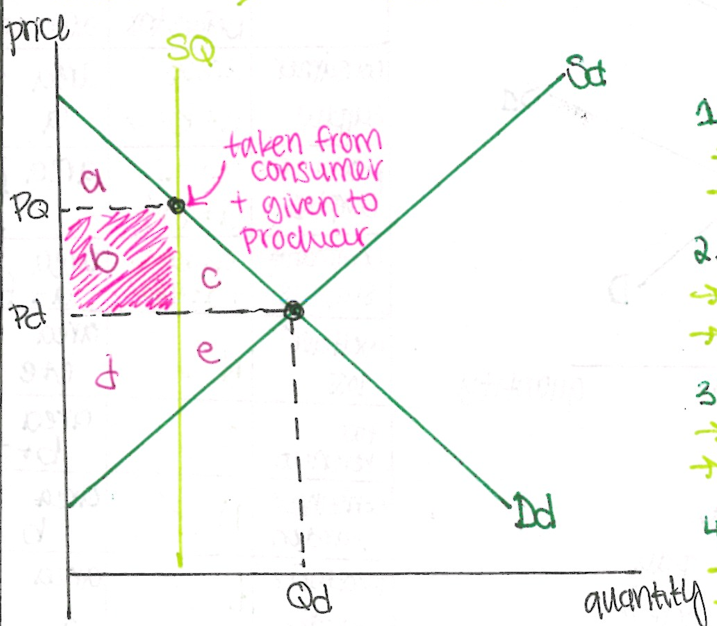 price
SQ
Sd
taken from
consumer
+ given to
producer
a
PQ
b
c
Pd
d
e
Dd
Qd
quantity
1
2.
3
4